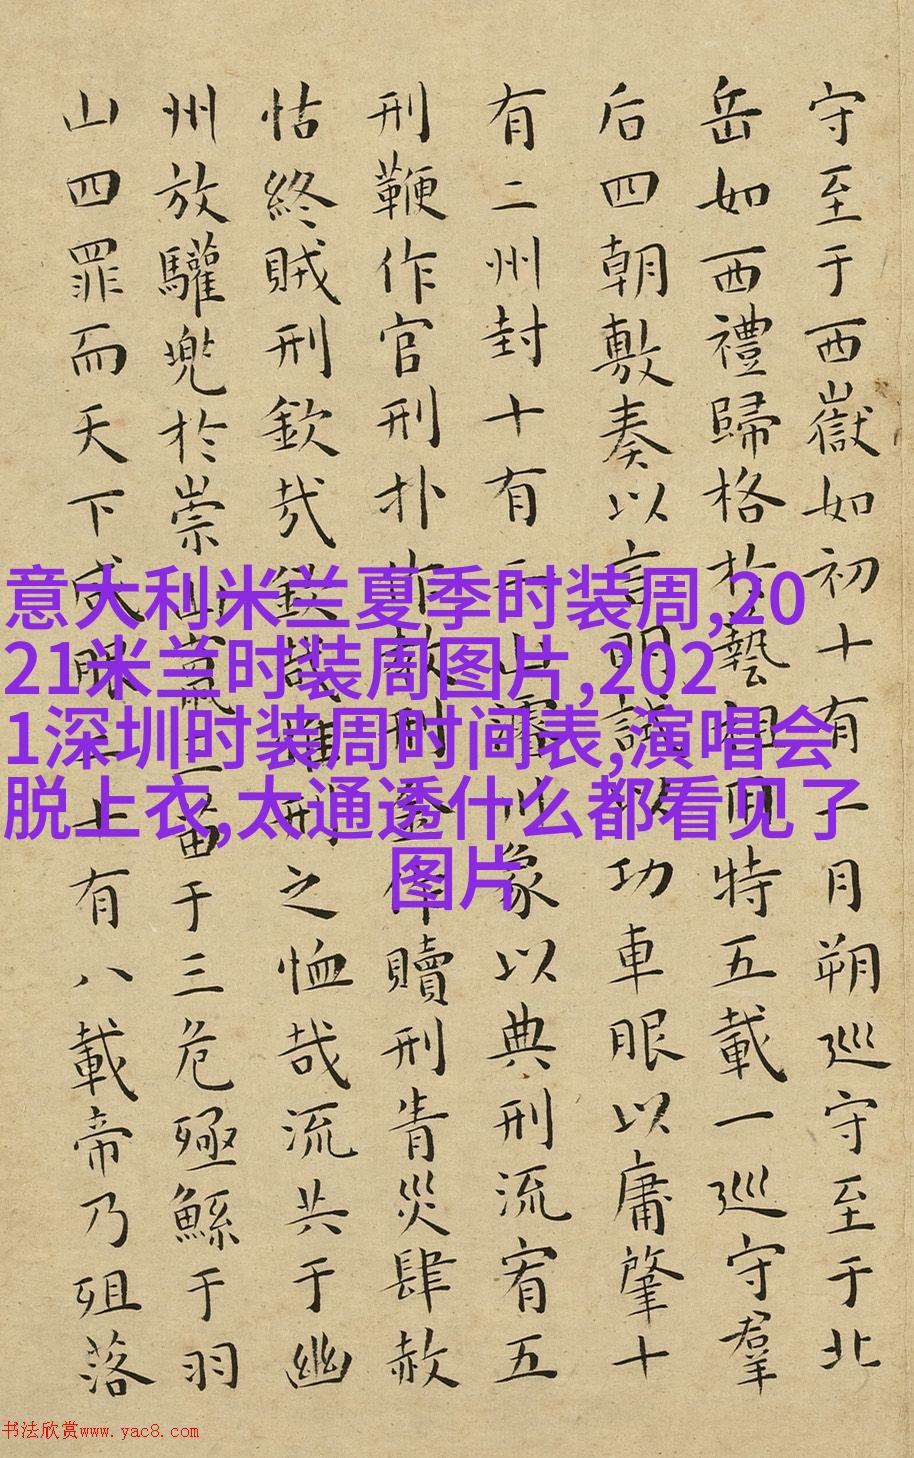 守至于西嶽如初十有一月朔巡守至于北
岳如西禮歸格於藝祖用特五載一巡守羣
后四朝敷奏以言明試以功車服以庸肇十
有二州封十有二山濬川象以典刑流宥五
刑鞭作官刑扑作教刑金作贖刑眚災肆赦
怙終賊刑欽哉欽哉惟刑之恤哉流共于幽
州放驩兜於崇山竄三苗于三危殛鯀于羽
山四罪而天下咸服二十有八載帝乃殂落
意大利米兰夏季时装周,20
21米兰时装周图片,202
1深圳时装周时间表,演唱会
脱上衣,太通透什么都看见了
图片
书法欣赏www.yac8.com